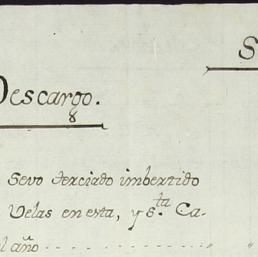 S
Descargo.
Sevo terciado imbertido
Velas en esta, y S.ta Ca-
el año